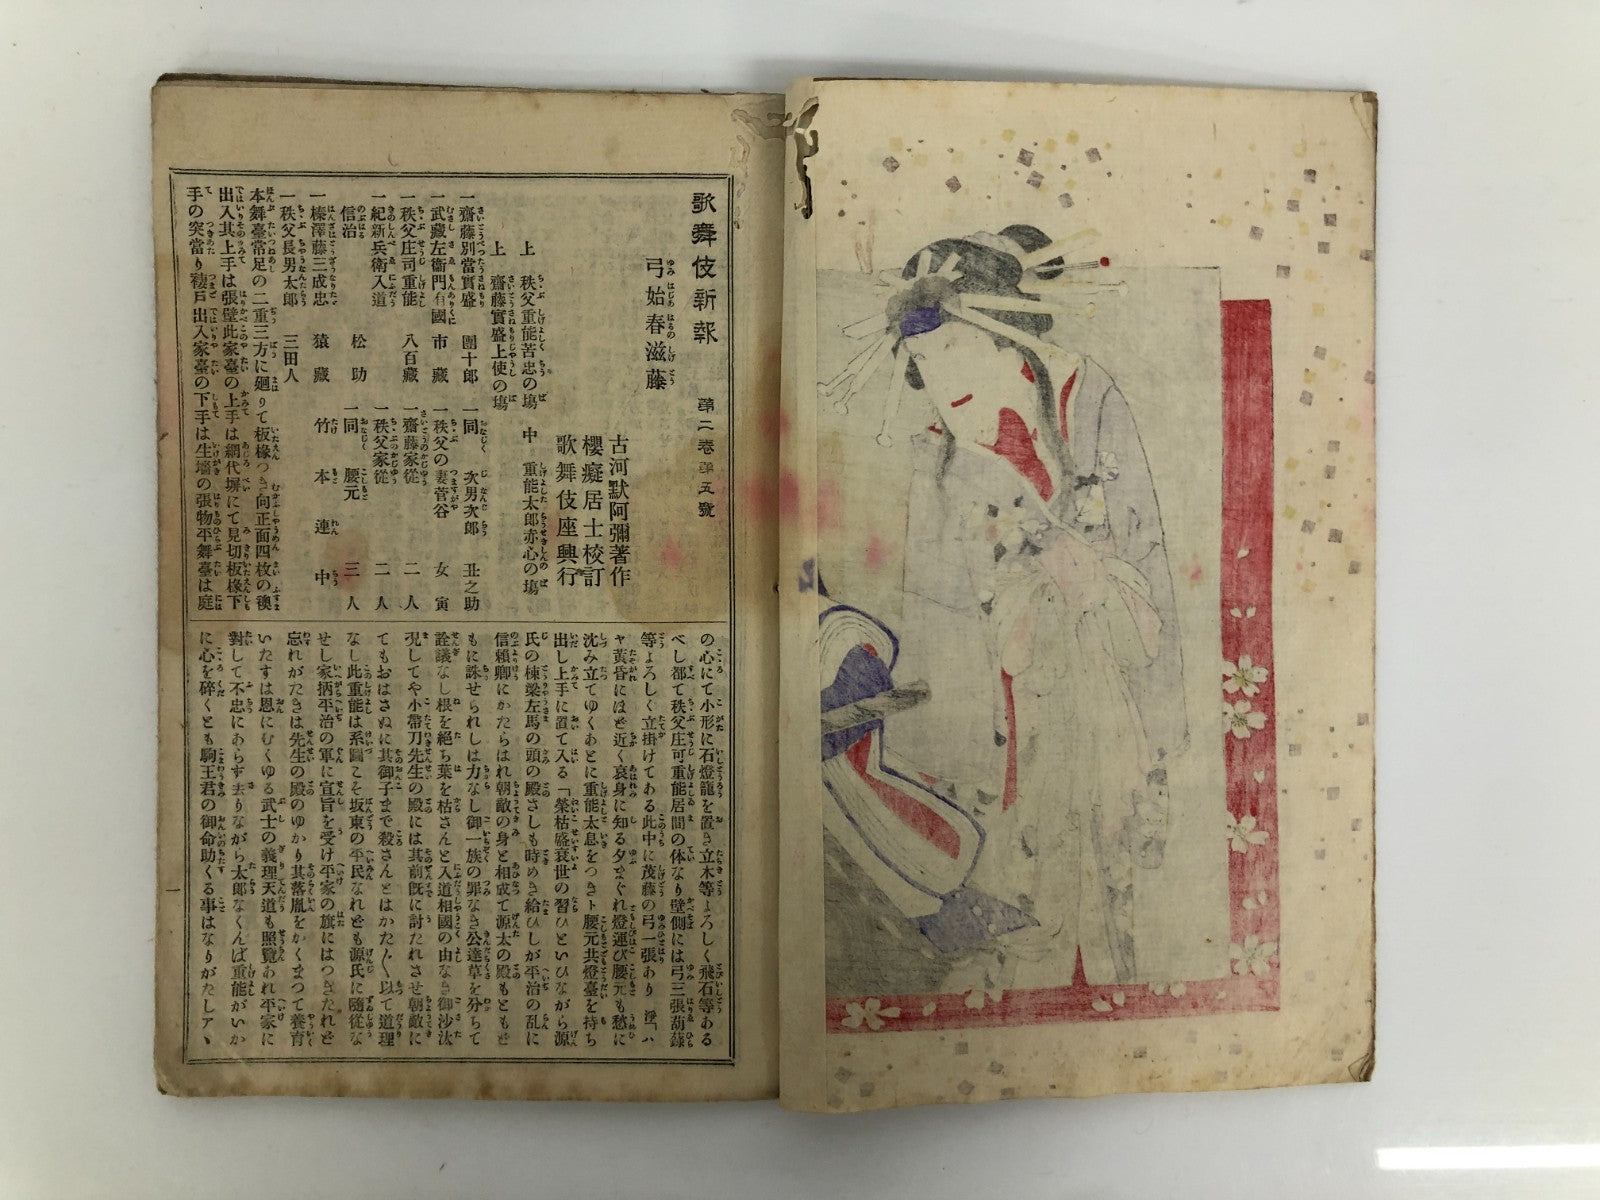 歌舞伎新報 第二卷第五號
弓始春滋藤
古河默阿彌著作
櫻癡居士校訂
歌舞伎座興行
上 秩父重能苦忠の塲 中 重能太郎赤心の塲
上 齋藤實盛上使の塲
一齋藤別當實盛 團十郎 一同 次男次郎 丑之助
一武藏左衞門有國 市藏 一秩父の妻菅谷 女寅
一秩父庄司重能 八百藏 一齋藤家從 二人
一紀新兵衛入道 一秩父家從 二人
信治 松助 一同 腰元 三人
一榛澤藤三成忠 猿藏 竹本連中
一秩父長男太郎 三田人
本舞臺常足の二重三方に廻りて板椽つき向正面四枚の襖
出入其上手は張壁此家臺の上手は網代塀にて見切板椽下
手の突當り褄戸出入家臺の下手は生墻の張物平舞臺は庭
の心にて小形に石燈籠を置き立木等よろしく飛石等ある
べし都て秩父庄司重能居間の体なり壁側には弓三張葫簶
等よろしく立掛けてある此中に茂藤の弓一張あり 淨「ハ
ヤ黄昏にほど近く哀身に知る夕まぐれ燈運び腰元も愁に
沈み立てゆくあとに重能太息をつきト腰元共燈臺を持ち
出し上手に置て入る「榮枯盛衰世の習ひといひながら源
氏の棟梁左馬の頭の殿さしも時めき給ひしが平治の乱に
信賴卿にかたらはれ朝敵の身と相成て源太の殿もともど
もに誅せられしは力なし御一族の罪なき公達草を分ちて
詮議なし根を絶ち葉を枯さんと入道相國の由なき御沙汰
况してや小帶刀先生の殿には其前既に討たれさせ朝敵に
てもおはさぬに其御子まで殺さんとはかた〳〵以て道理
なし此重能は系圖こそ坂東の平民なれども源氏に隨從な
せし家柄平治の軍に宣旨を受け平家の旗にはつきたれど
忘れがたきは先生の殿のゆかり其落胤をかくまつて養育
いたすは恩にむくゆる武士の義理天道も照覽あれ平家に
對して不忠にあらず去りながら太郎なくんば重能がいか
に心を碎くとも駒王君の御命助くる事はなりがたしアヽ
一